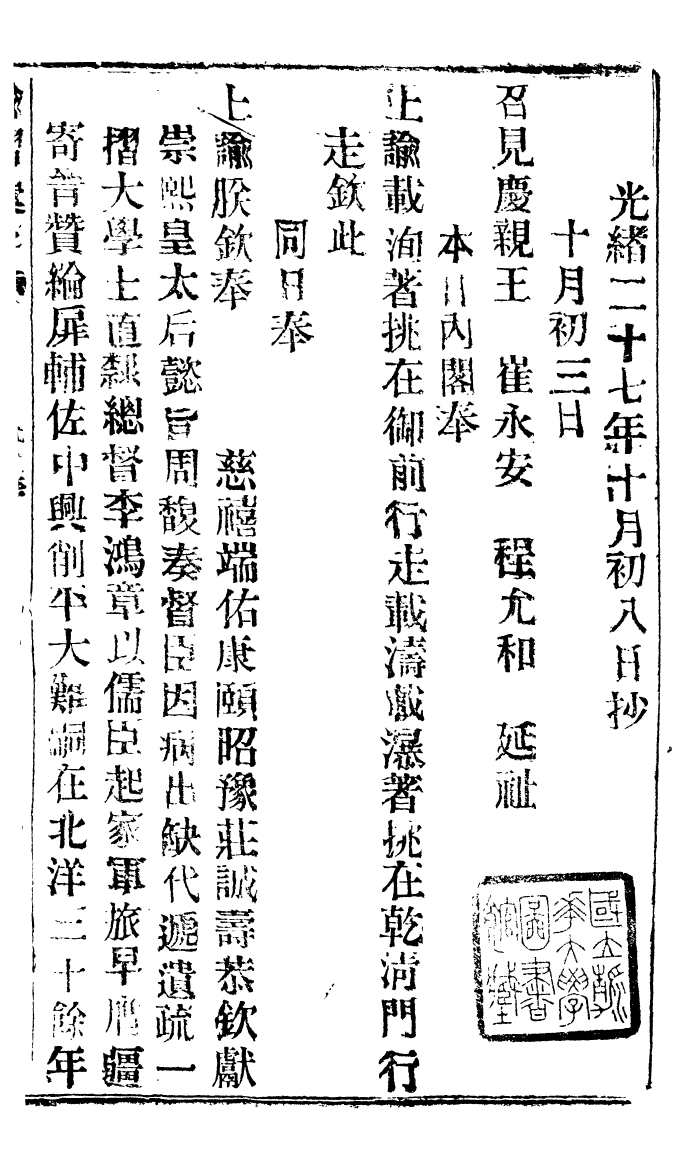 光緒二十七年十月初八日抄
十月初三日
召見慶親王 崔永安 程允和 延祉
本日內閣奉
上諭載洵著挑在御前行走載濤載瀛著挑在乾清門行
走欽此
同日奉
上諭朕欽奉 慈禧端佑康頤昭豫莊誠壽恭欽獻
崇熙皇太后懿旨周馥奏督臣因病出缺代遞遺疏一
摺大學士直隸總督李鴻章以儒臣起家軍旅早膺疆
寄晉贊綸扉輔佐中興削平大難嗣在北洋三十餘年
國立清華大學圖書館藏